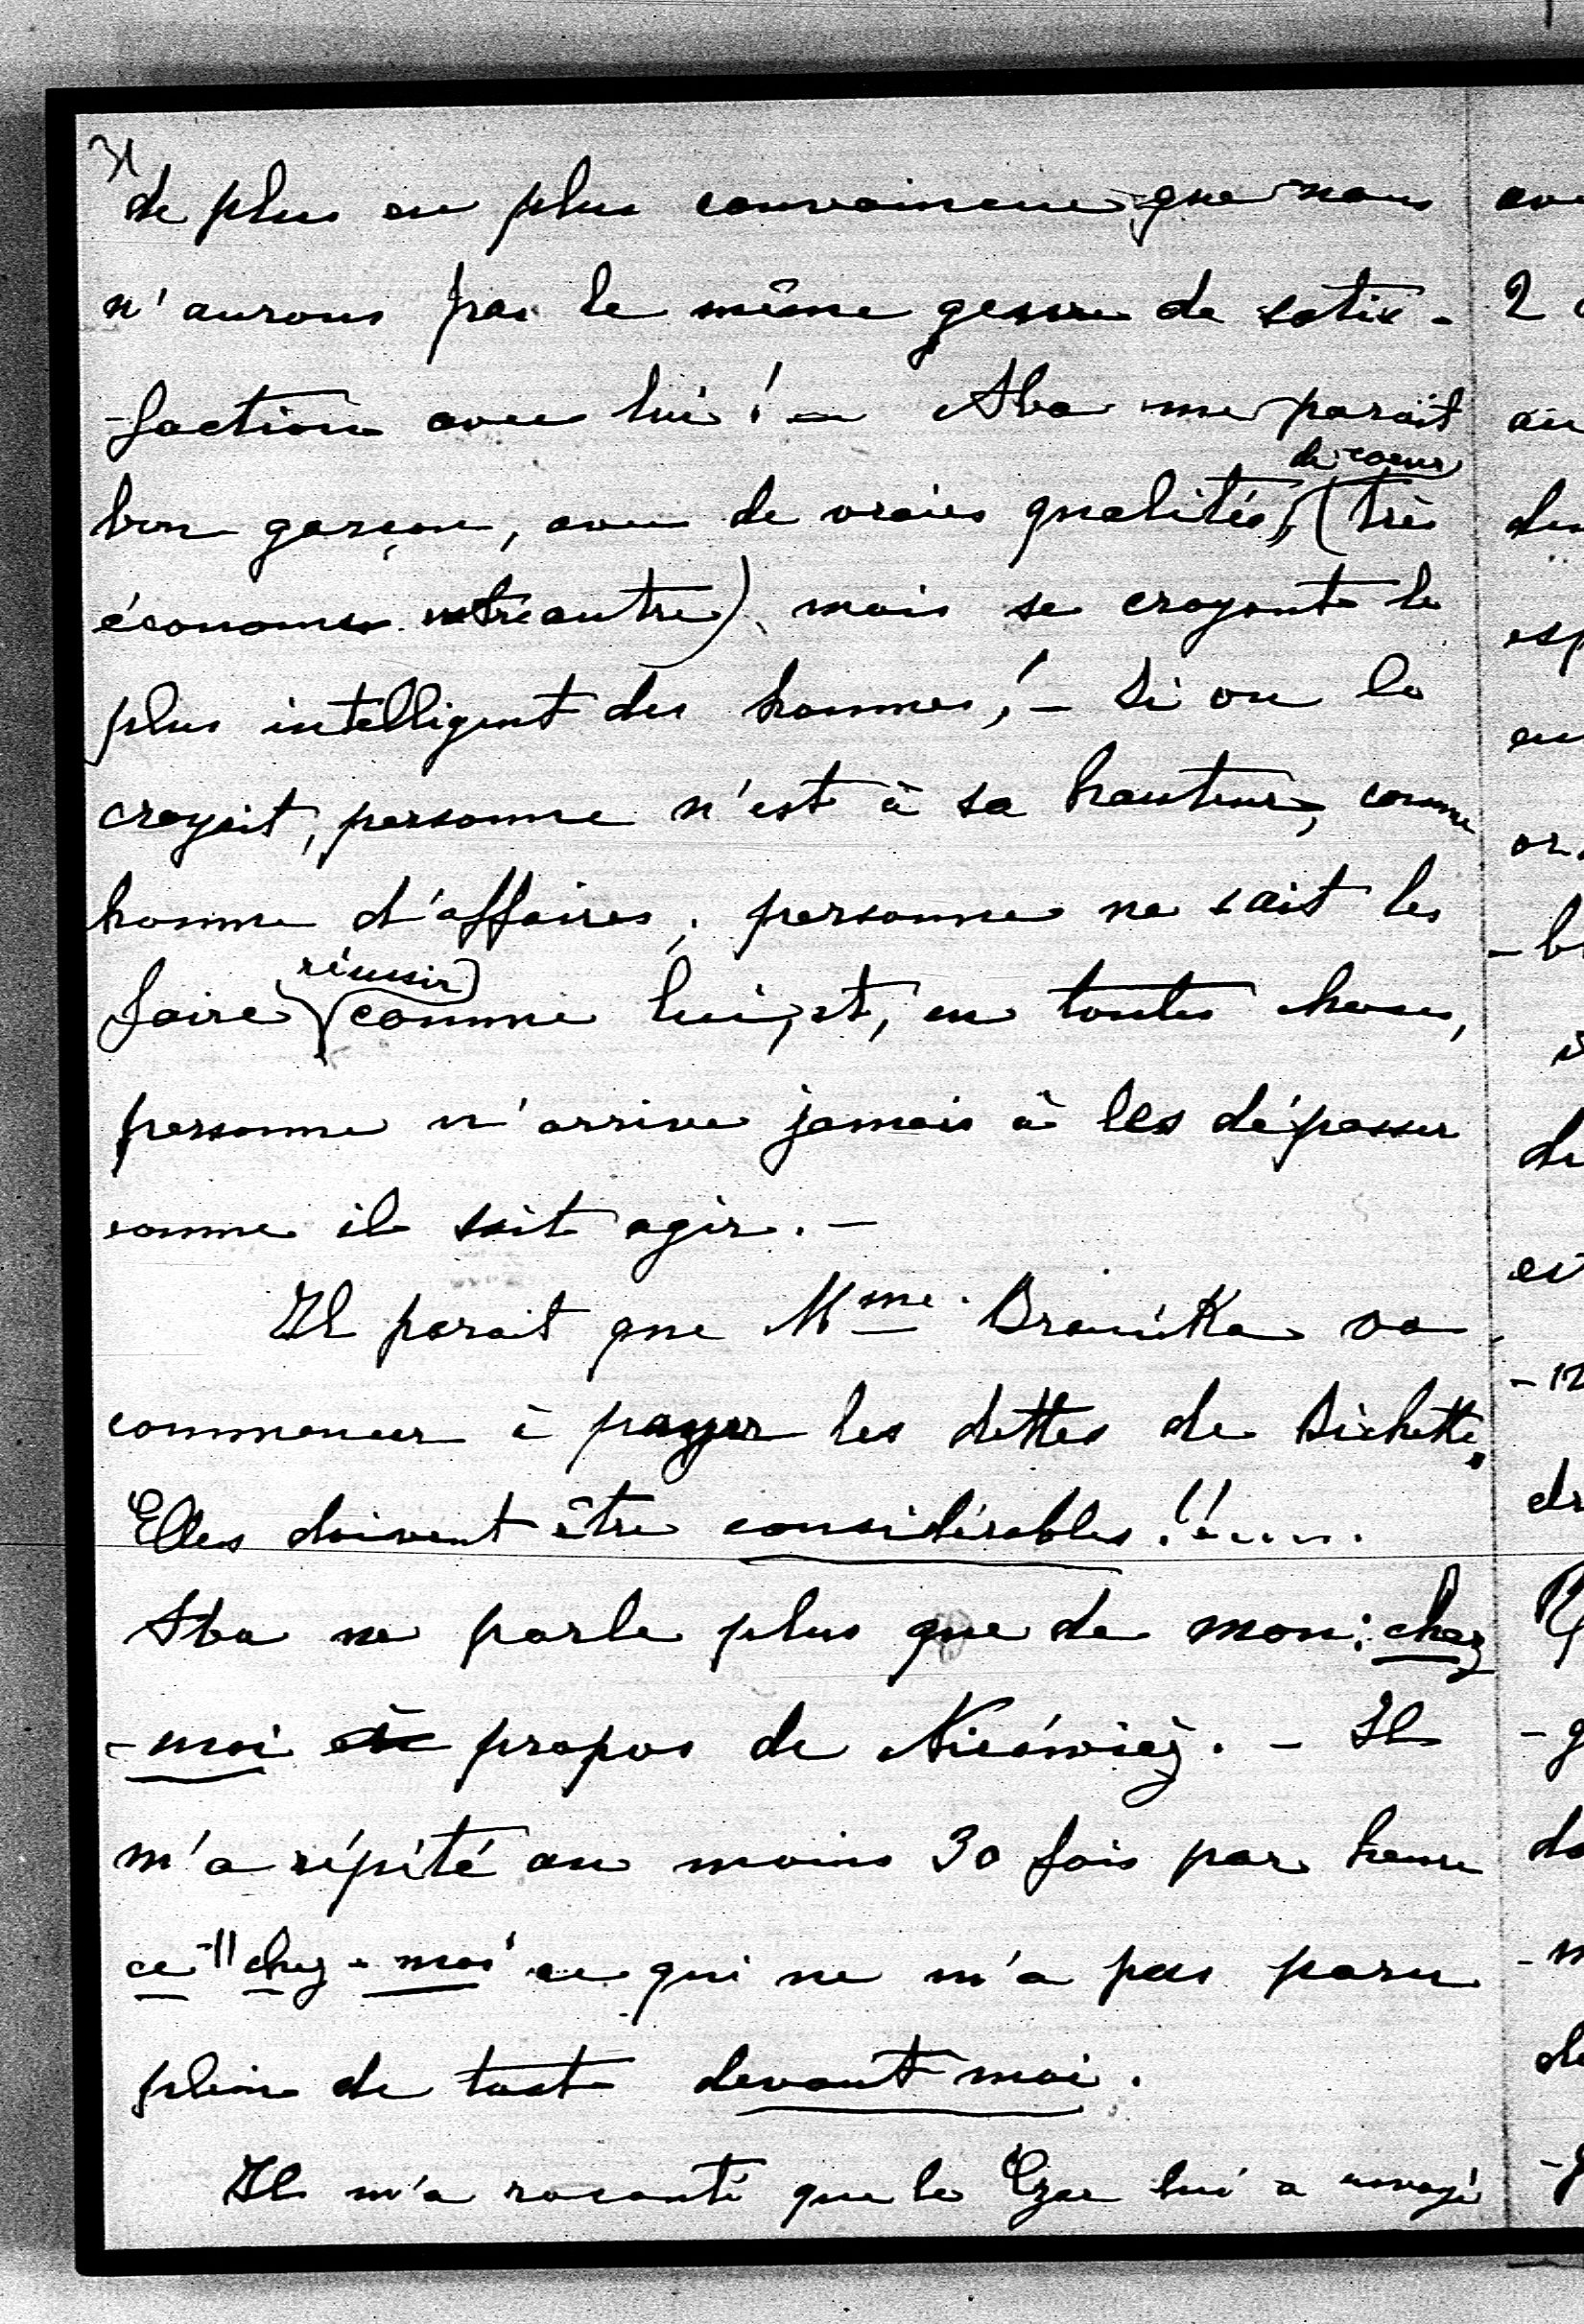 31
de plus en plus convaincue que nous
n'aurons pas le même genre de satis-
-faction avec lui! — Aba me paraît
de coeur
bon garçon, avec de vraies qualités, (très
économe entre autre) mais se croyant le
plus intelligent des hommes! — Si on le
croyait, personne n'est à sa hauteur, comme
homme d'affaires, personne ne sait les
réussir
faire comme lui, et, en toutes choses,
personne n'arrive jamais à les dépasser
comme il sait agir. —
Il parait que Mme. Branicka va
commencer à payer les dettes de Bichette.
Elles doivent être considérables!!....
Aba ne parle plus que de mon: chez
-moi à propos de Nieświéz. — Il
m'a répété au moins 30 fois par heure
ce "chez-moi" ce qui ne m'a pas paru
plein de tact devant moi.
Il m'a raconté que le Czar lui a envoyé